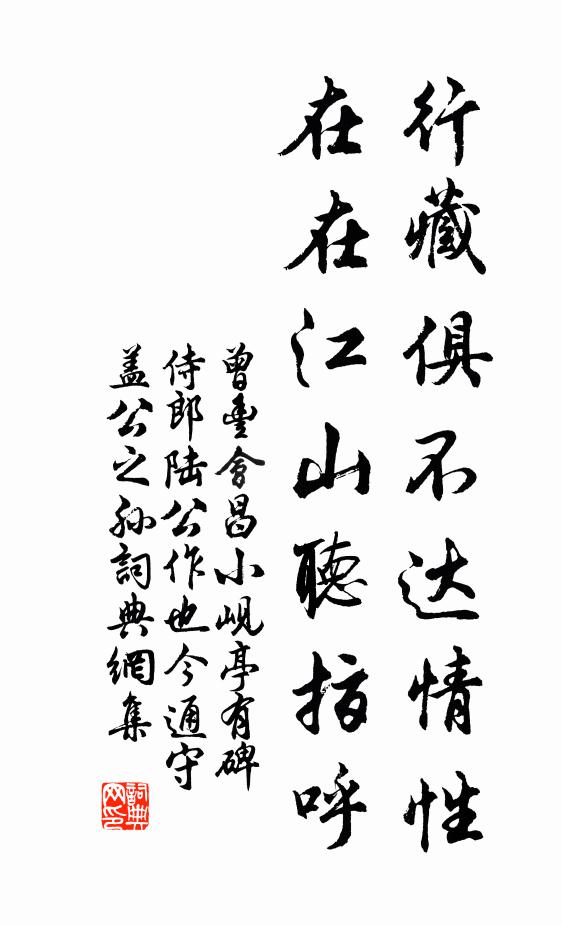 行藏俱不达情性
在在江山聽指呼
曾豐會昌小峴亭有碑
侍郎陆公作也今通守
盖公之孫詞典網集
詞典網印